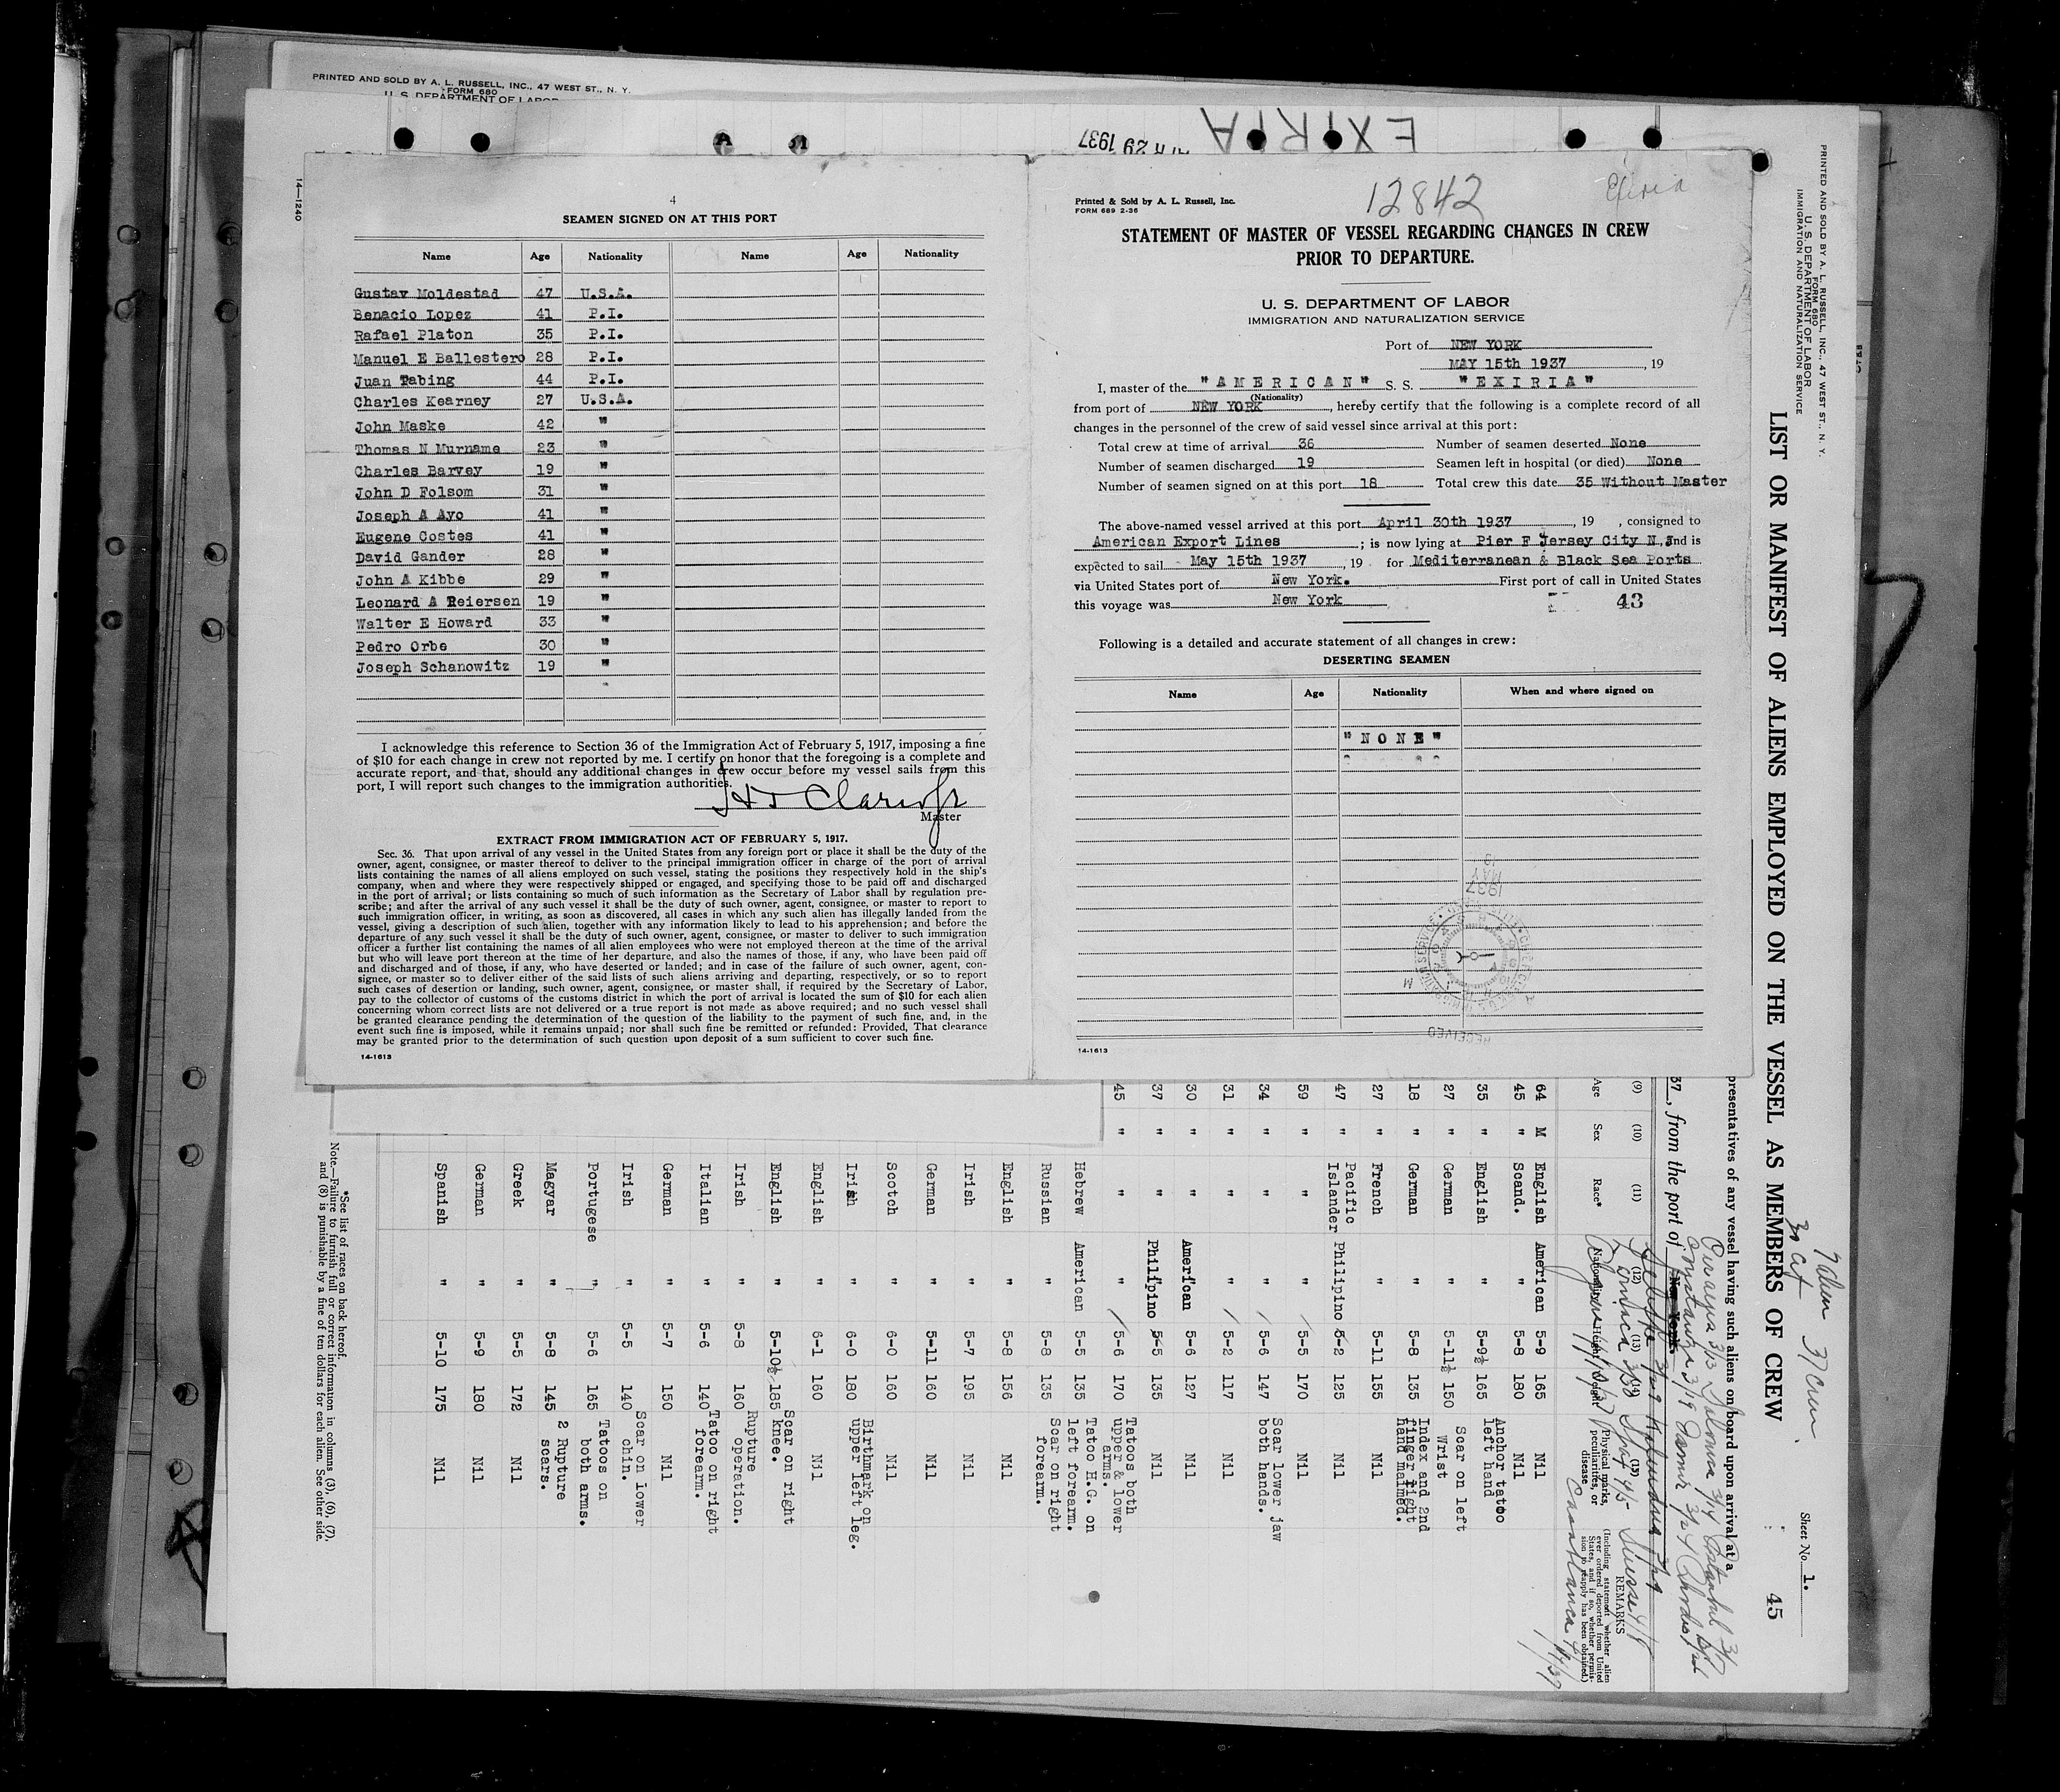 PRINTED AND SOLD BY A. L. RUSSELL, INC., 47 WEST ST., N. Y.
FORM 680
U. S. DEPARTMENT OF LABOR
EXIRIA
29 1937
14—1240
4
SEAMEN SIGNED ON AT THIS PORT
Name Age Nationality Name Age Nationality
Gustav Moldestad 47 U.S.A.
Benacio Lopez 41 P.I.
Rafael Platon 35 P.I.
Manuel E Ballestero 28 P.I.
Juan Tabing 44 P.I.
Charles Kearney 27 U.S.A.
John Maske 42 "
Thomas N Murname 23 "
Charles Barvey 19 "
John D Folsom 31 "
Joseph A Ayo 41 "
Eugene Costes 41 "
David Gander 28 "
John A Kibbe 29 "
Leonard A Reiersen 19 "
Walter E Howard 33 "
Pedro Orbe 30 "
Joseph Schanowitz 19 "
I acknowledge this reference to Section 36 of the Immigration Act of February 5, 1917, imposing a fine
of $10 for each change in crew not reported by me. I certify on honor that the foregoing is a complete and
accurate report, and that, should any additional changes in crew occur before my vessel sails from this
port, I will report such changes to the immigration authorities.
Master
EXTRACT FROM IMMIGRATION ACT OF FEBRUARY 5, 1917.
Sec. 36. That upon arrival of any vessel in the United States from any foreign port or place it shall be the duty of the
owner, agent, consignee, or master thereof to deliver to the principal immigration officer in charge of the port of arrival
lists containing the names of all aliens employed on such vessel, stating the positions they respectively hold in the ship's
company, when and where they were respectively shipped or engaged, and specifying those to be paid off and discharged
in the port of arrival; or lists containing so much of such information as the Secretary of Labor shall by regulation pre-
scribe; and after the arrival of any such vessel it shall be the duty of such owner, agent, consignee, or master to report to
such immigration officer, in writing, as soon as discovered, all cases in which any such alien has illegally landed from the
vessel, giving a description of such alien, together with any information likely to lead to his apprehension; and before the
departure of any such vessel it shall be the duty of such owner, agent, consignee, or master to deliver to such immigration
officer a further list containing the names of all alien employees who were not employed thereon at the time of the arrival
but who will leave port thereon at the time of her departure, and also the names of those, if any, who have been paid off
and discharged and of those, if any, who have deserted or landed; and in case of the failure of such owner, agent, con-
signee, or master so to deliver either of the said lists of such aliens arriving and departing, respectively, or so to report
such cases of desertion or landing, such owner, agent, consignee, or master shall, if required by the Secretary of Labor,
pay to the collector of customs of the customs district in which the port of arrival is located the sum of $10 for each alien
concerning whom correct lists are not delivered or a true report is not made as above required; and no such vessel shall
be granted clearance pending the determination of the question of the liability to the payment of such fine, and, in the
event such fine is imposed, while it remains unpaid; nor shall such fine be remitted or refunded: Provided, That clearance
may be granted prior to the determination of such question upon deposit of a sum sufficient to cover such fine.
14-1613
Printed & Sold by A. L. Russell, Inc.
FORM 689 2-36
12842
STATEMENT OF MASTER OF VESSEL REGARDING CHANGES IN CREW
PRIOR TO DEPARTURE.
U. S. DEPARTMENT OF LABOR
IMMIGRATION AND NATURALIZATION SERVICE
Port of NEW YORK
MAY 15th 1937, 19
I, master of the "AMERICAN" S. S. "EXIRIA"
(Nationality)
from port of NEW YORK, hereby certify that the following is a complete record of all
changes in the personnel of the crew of said vessel since arrival at this port:
Total crew at time of arrival 36 Number of seamen deserted None
Number of seamen discharged 19 Seamen left in hospital (or died) None
Number of seamen signed on at this port 18 Total crew this date 35 Without Master
The above-named vessel arrived at this port April 30th 1937, 19 , consigned to
American Export Lines ; is now lying at Pier F Jersey City N.J and is
expected to sail May 15th 1937, 19 for Mediterranean & Black Sea Ports
via United States port of New York. First port of call in United States
this voyage was New York 43
Following is a detailed and accurate statement of all changes in crew:
DESERTING SEAMEN
Name Age Nationality When and where signed on
"NONE"
MAY 1937
RECEIVED
14-1613
PRINTED AND SOLD BY A. L. RUSSELL, INC., 47 WEST ST., N. Y.
FORM 680
U. S. DEPARTMENT OF LABOR
IMMIGRATION AND NATURALIZATION SERVICE
LIST OR MANIFEST OF ALIENS EMPLOYED ON THE VESSEL AS MEMBERS OF CREW
Sheet No. 1.
45
37 Crew
presentatives of any vessel having such aliens on board upon arrival at a
37, from the port of New York.
(9) (10) (11) (12) (13) (14) (15)
Age Sex Race* Nationality Height Weight Physical marks, peculiarities, or disease
REMARKS
(Including statement whether alien ever ordered deported from United States, and if so, whether permission to reapply has been obtained.)
64 M English American 5-9 165 Nil
45 " Scand. " 5-8 180 Nil
35 " English " 5-9½ 165 Anchor tatoo left hand
27 " German " 5-11½ 150 Scar on left Wrist
18 " German " 5-8 135 Index and 2nd finger right hand maimed.
27 " French " 5-11 155 Nil
47 " Pacific Islander Philipino 5-2 125 Nil
59 " " " 5-5 170 Nil
34 " " " 5-6 147 Scar lower jaw both hands.
31 " " " 5-2 117 Nil
30 " " American 5-6 127 Nil
37 " " Philipino 5-5 135 Nil
45 " " " 5-6 170 Tatoos both upper & lower arms.
Hebrew American 5-5 135 Tatoo H.G. on left forearm.
Russian " 5-8 135 Scar on right forearm.
English " 5-8 156 Nil
Irish " 5-7 195 Nil
German " 5-11 160 Nil
Scotch " 6-0 160 Nil
Irish " 6-0 180 Birthmark on upper left leg.
English " 6-1 160 Nil
English " 5-10½ 185 Scar on right knee.
Irish " 5-8 160 Rupture operation.
Italian " 5-6 140 Tatoo on right forearm.
German " 5-7 150 Nil
Irish " 5-5 140 Scar on lower chin.
Portugese " 5-6 165 Tatoos on both arms.
Magyar " 5-8 145 2 Rupture scars.
Greek " 5-5 172 Nil
German " 5-9 180 Nil
Spanish " 5-10 175 Nil
*See list of races on back hereof.
Note.—Failure to furnish full or correct information in columns (3), (6), (7),
and (8) is punishable by a fine of ten dollars for each alien. See other side.